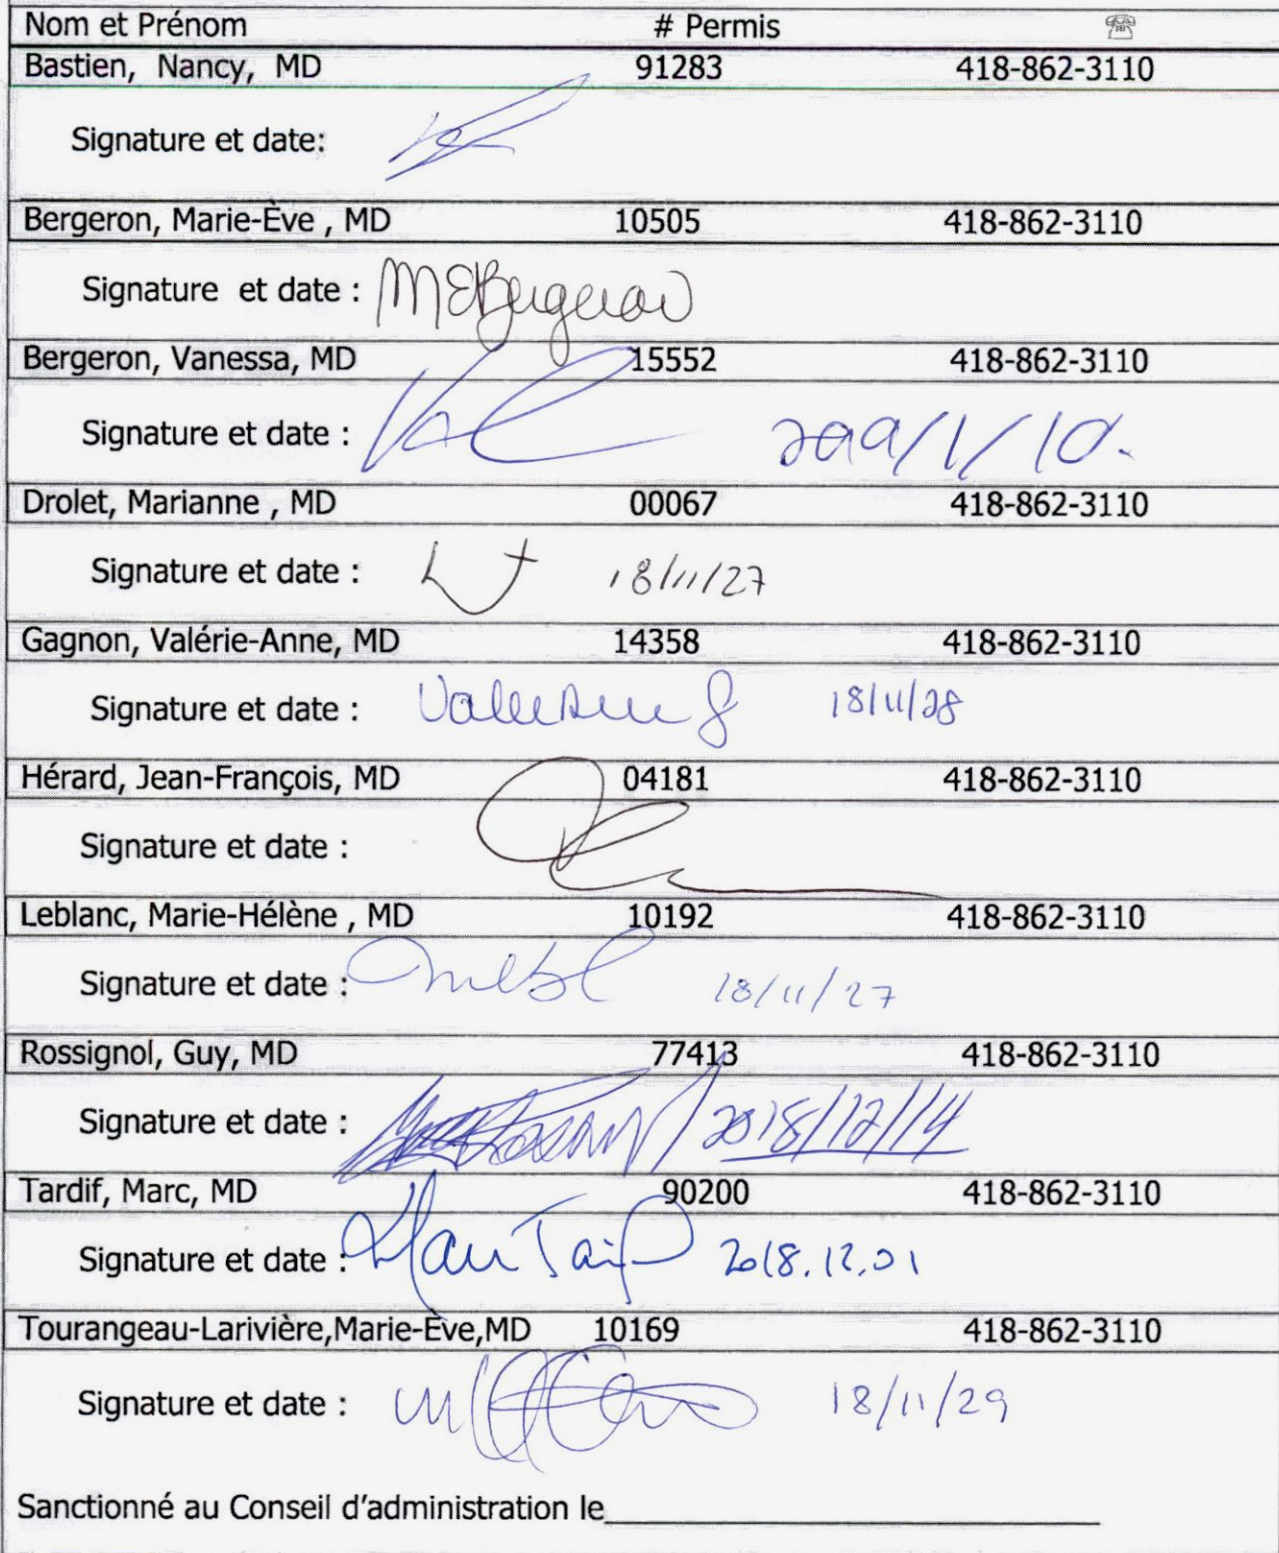 Nom et Prénom # Permis ☏
Bastien, Nancy, MD 91283 418-862-3110
Signature et date:
Bergeron, Marie-Ève , MD 10505 418-862-3110
Signature et date : MEBergeron
Bergeron, Vanessa, MD 15552 418-862-3110
Signature et date :
Drolet, Marianne , MD 00067 418-862-3110
Signature et date : 18/11/27
Gagnon, Valérie-Anne, MD 14358 418-862-3110
Signature et date : 18/11/28
Hérard, Jean-François, MD 04181 418-862-3110
Signature et date :
Leblanc, Marie-Hélène , MD 10192 418-862-3110
Signature et date : 18/11/27
Rossignol, Guy, MD 77413 418-862-3110
Signature et date : 2018/12/14
Tardif, Marc, MD 90200 418-862-3110
Signature et date : 2018.12.01
Tourangeau-Larivière,Marie-Ève,MD 10169 418-862-3110
Signature et date : 18/11/29
Sanctionné au Conseil d'administration le